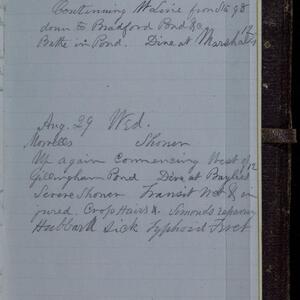 Continuing W Line from Sta 98
down to Bradford Pond &c
Bathe in Pond. Dine at Marshalls 12
Aug. 29 Wed.
Morrells Shower
Up again Commencing West of
Gillingham Pond Dine at Baylies 12
Severe Shower Transit wet & in
jured. Crop Hairs &. Simonds repairing
Hubbard Sick Typhoid